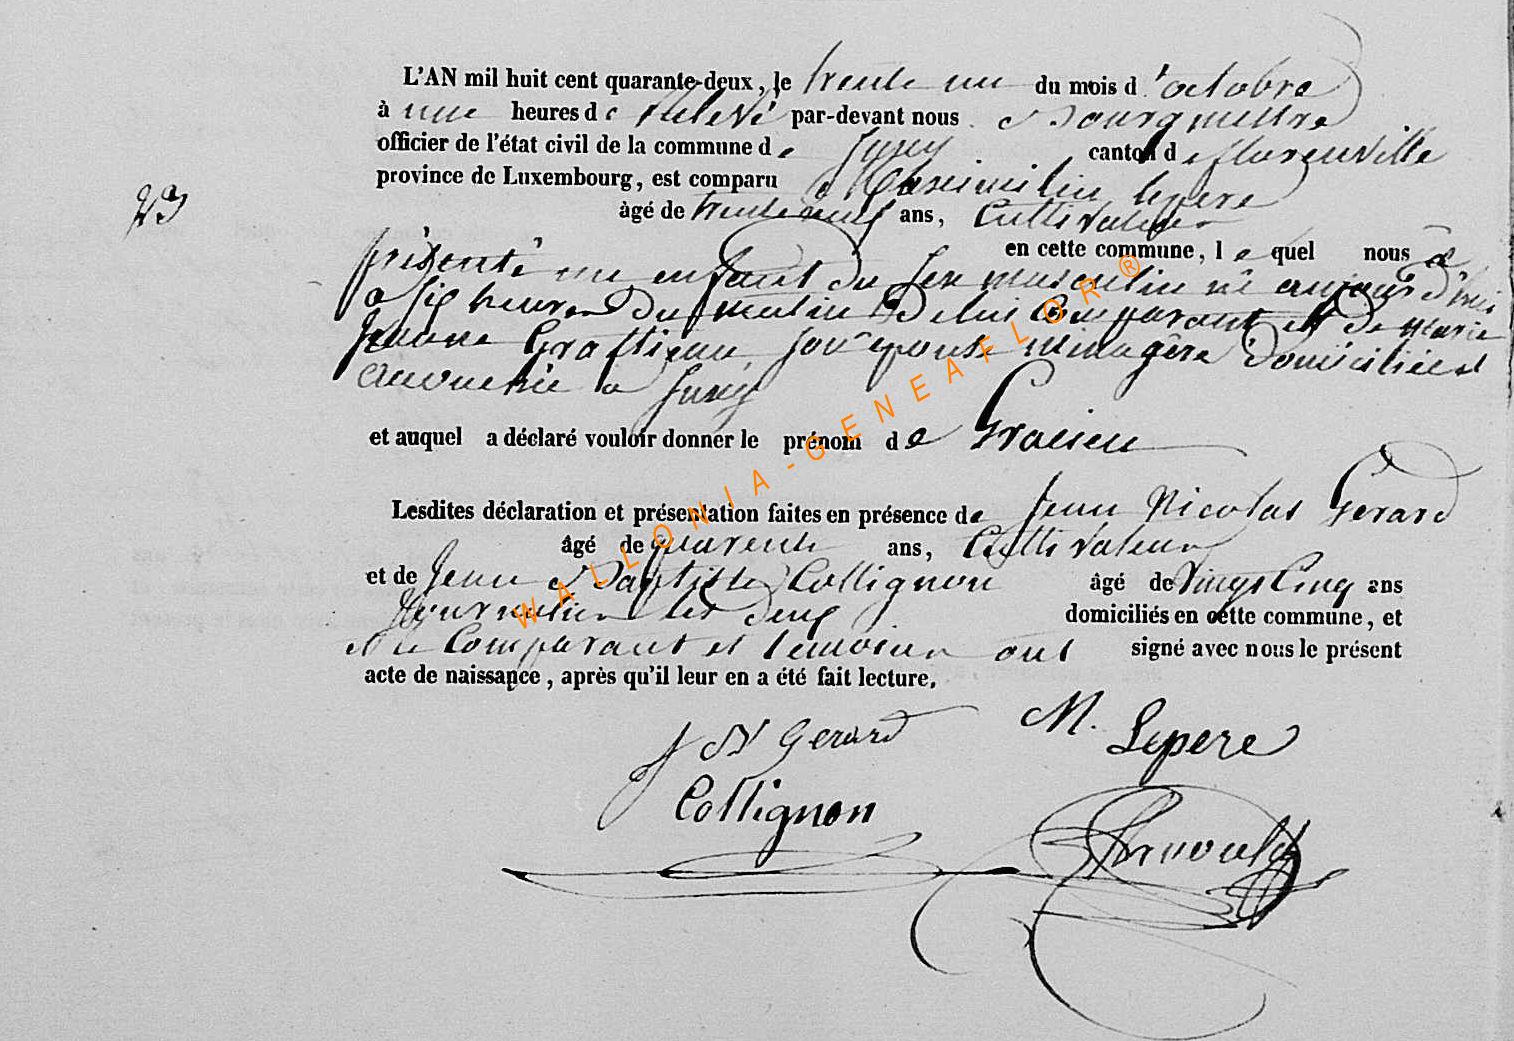 L'AN mil huit cent quarante-deux, le trente un du mois d'octobre
à une heures de Relevé par-devant nous Bourgmestre
officier de l'état civil de la commune de Suxy canton de florenville
province de Luxembourg, est comparu Maximilin lepere
23
âgé de trente neuf ans, Cultivateur
en cette commune, lequel nous a
présenté un enfant du sex masculin né aujourd'hui
a six heures du matin De lui Comparant et De marie
Jeanne son epouse ménagère Domiciliée et
a Suxy
et auquel a déclaré vouloir donner le prénom de Gratien
Lesdites déclaration et présentation faites en présence de Jean Nicolas Gerard
âgé de quarente ans, Cultivateur
et de Jean Baptiste Collignon âgé de Vingt Cinq ans
Journalier les deux domiciliés en cette commune, et
et le Comparant et temoins ont signé avec nous le présent
acte de naissance, après qu'il leur en a été fait lecture.
J N Gerard M. Lepere
Collignon
WALLONIA-GENEAFLOR ®